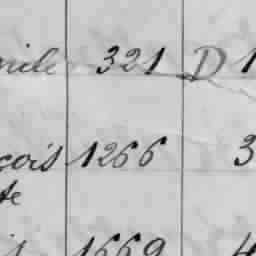 nile 321 D 1
çois 1266 3
te
1669 4